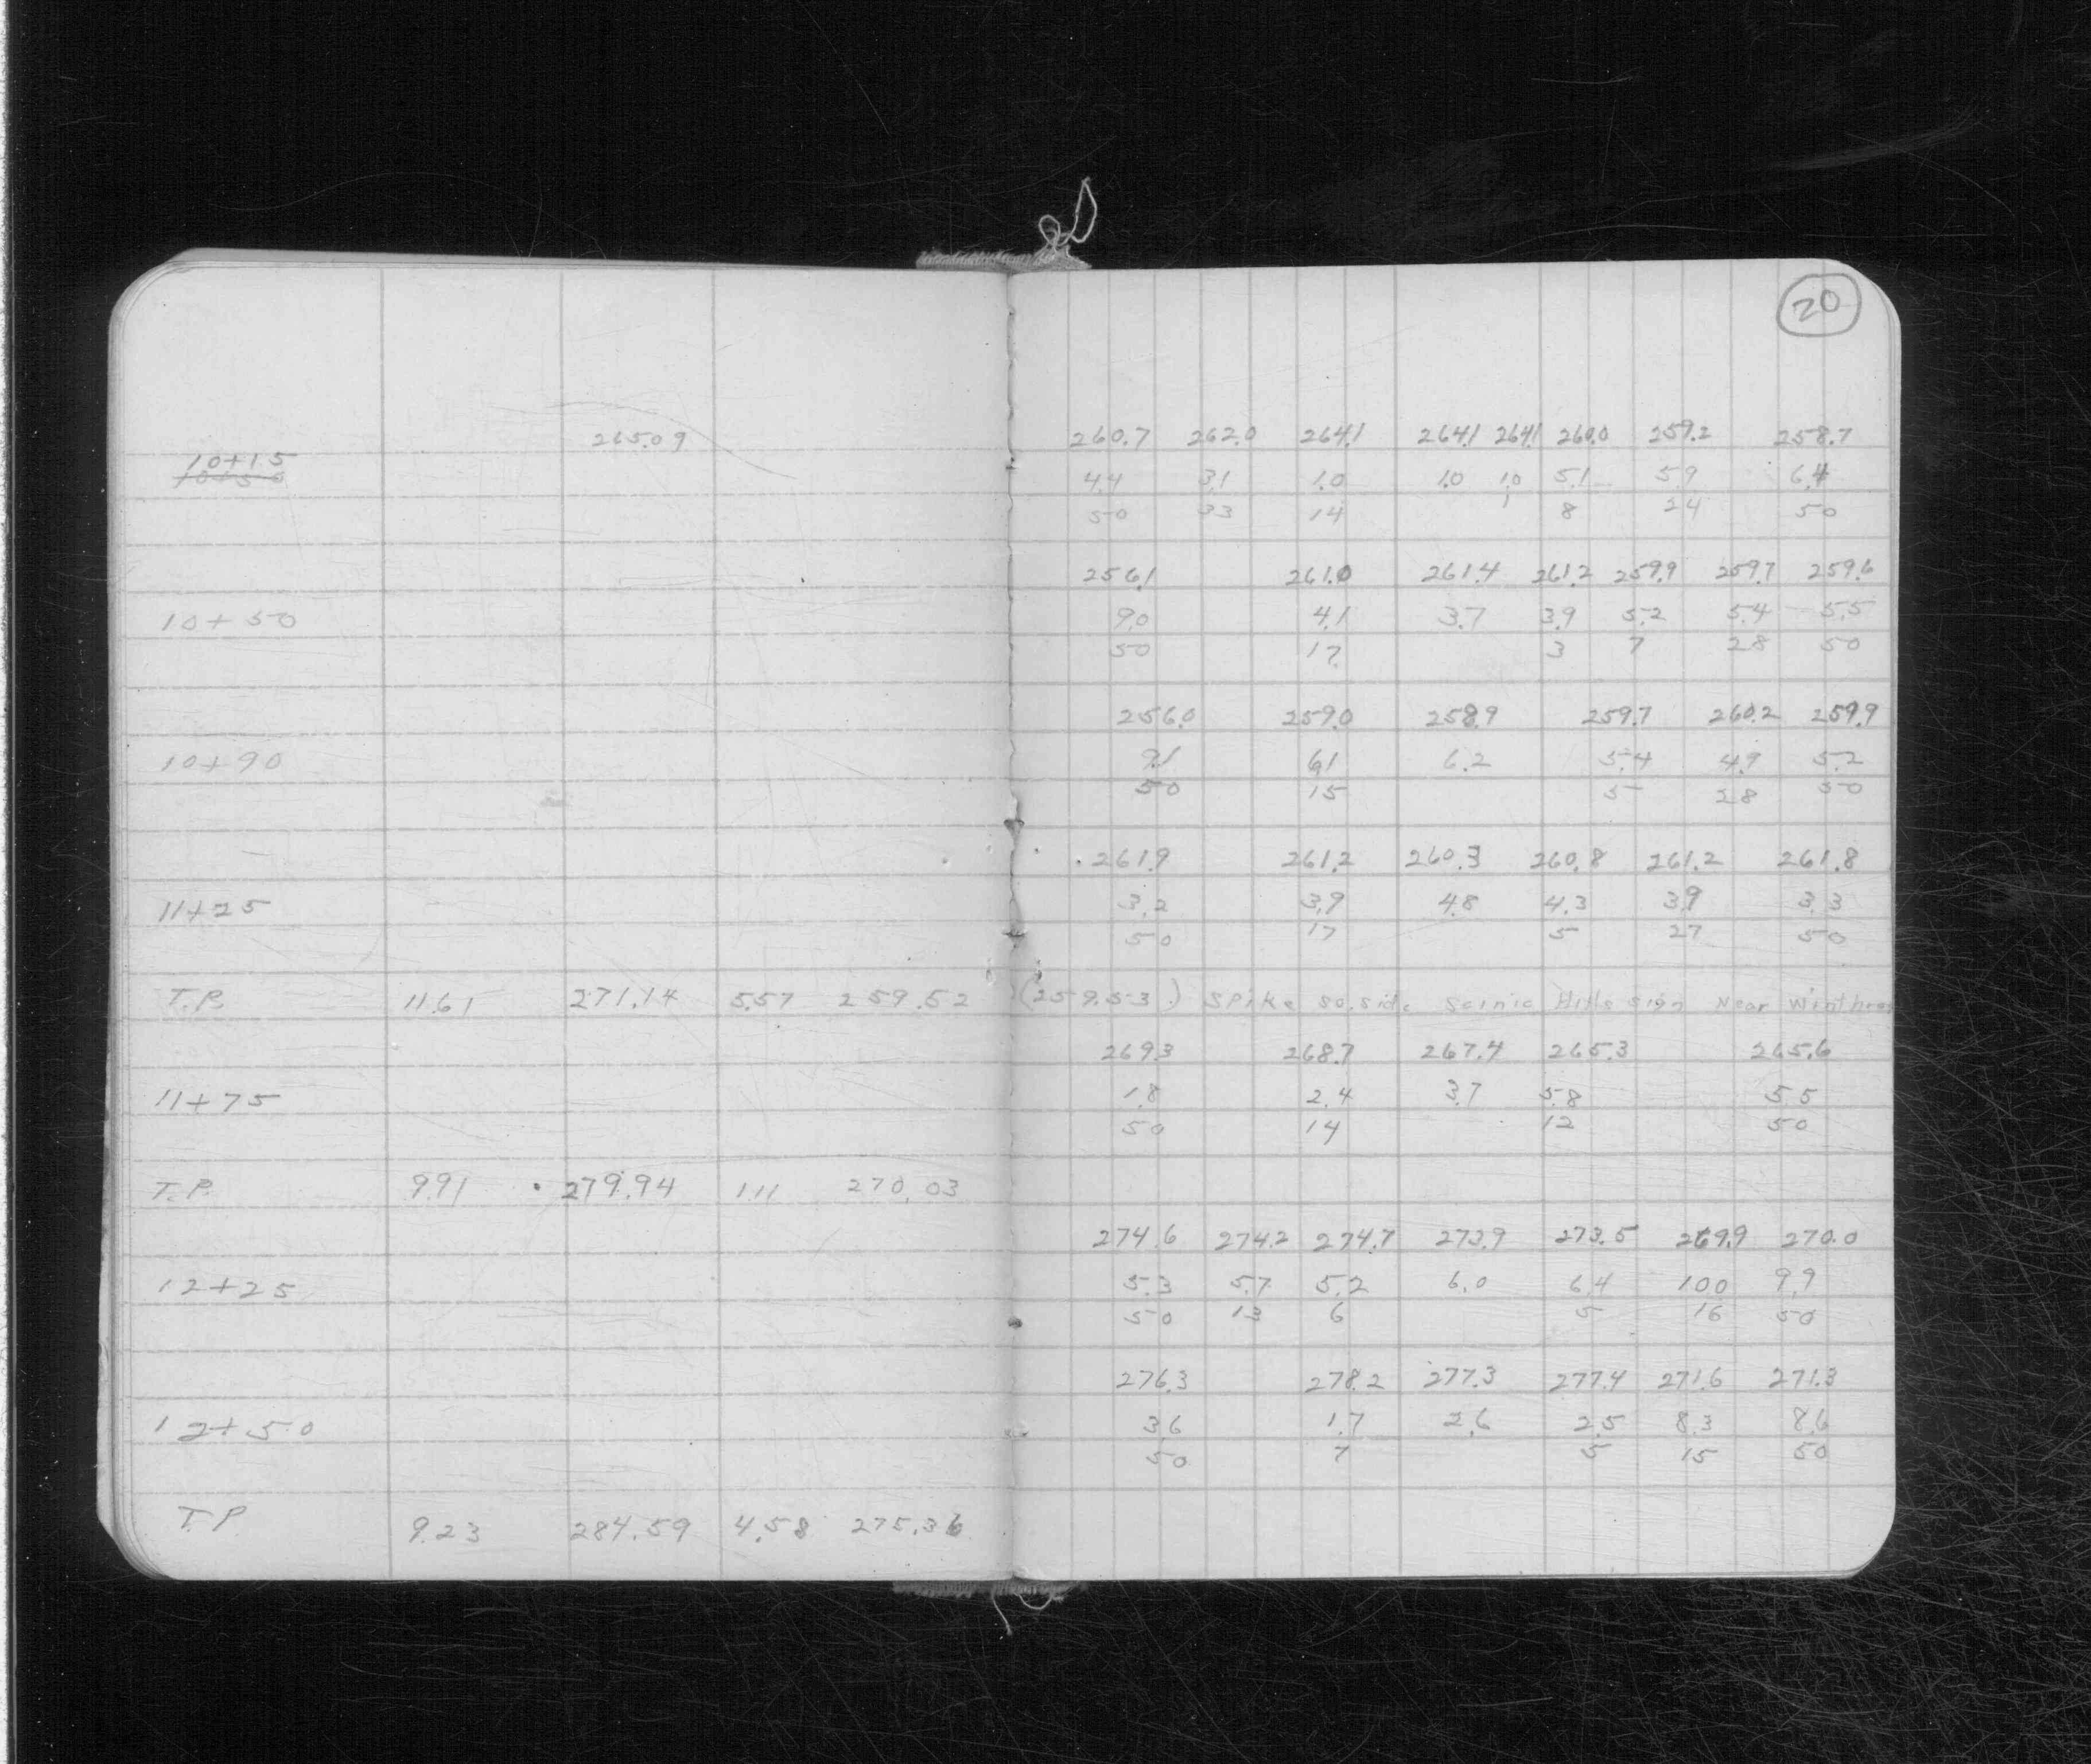 20
265.09 260.7 262.0 264.1 264.1 264.1 260.0 259.2 258.7
10+15
10+50 4.4 3.1 1.0 1.0 1.0 5.1 5.9 6.4
50 33 14 1 8 24 50
256.1 261.0 261.4 261.2 259.9 259.7 259.6
10+50 9.0 4.1 3.7 3.9 5.2 5.4 5.5
50 17 3 7 28 50
256.0 259.0 258.9 259.7 260.2 259.9
10+90 9.1 6.1 6.2 5.4 4.9 5.2
50 15 5 28 50
261.9 261.2 260.3 260.8 261.2 261.8
11+25 3.2 3.9 4.8 4.3 3.9 3.3
50 17 5 27 50
T.P. 11.61 271.14 5.57 259.52 (259.53) Spike so. side Scinic Hills sign Near
269.3 268.7 267.4 265.3 265.6
11+75 1.8 2.4 3.7 5.8 5.5
50 14 12 50
T.P. 9.91 279.94 1.11 270.03
274.6 274.2 274.7 273.9 273.5 269.9 270.0
12+25 5.3 5.7 5.2 6.0 6.4 10.0 9.9
50 13 6 5 16 50
276.3 278.2 277.3 277.4 271.6 271.3
12+50 3.6 1.7 2.6 2.5 8.3 8.6
50 7 5 15 50
T.P. 9.23 284.59 4.58 275.36